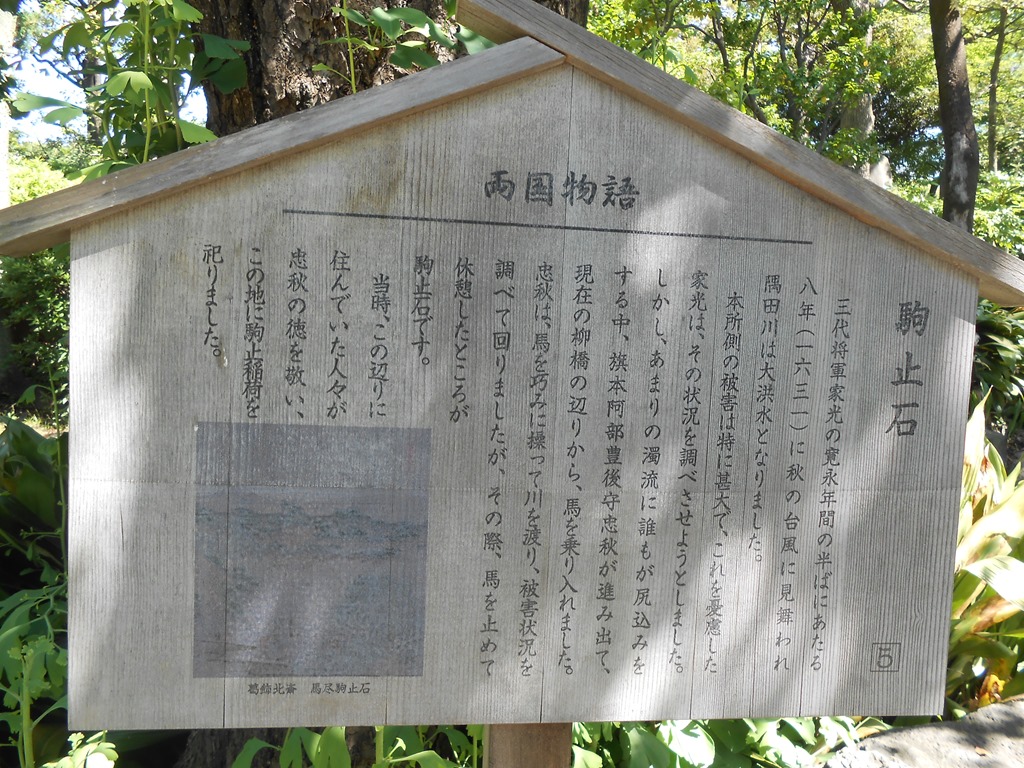 両国物語
駒止石
三代将軍家光の寛永年間の半ばにあたる
八年(一六三一)に秋の台風に見舞われ
隅田川は大洪水となりました。
本所側の被害は特に甚大で、これを憂慮した
家光は、その状況を調べさせようとしました。
しかし、あまりの濁流に誰もが尻込みを
する中、旗本阿部豊後守忠秋が進み出て、
現在の柳橋の辺りから、馬を乗り入れました。
忠秋は、馬を巧みに操って川を渡り、被害状況を
調べて回りましたが、その際、馬を止めて
休憩したところが
駒止石です。
当時、この辺りに
住んでいた人々が
忠秋の徳を敬い、
この地に駒止稲荷を
祀りました。
葛飾北斎 馬尽駒止石
5